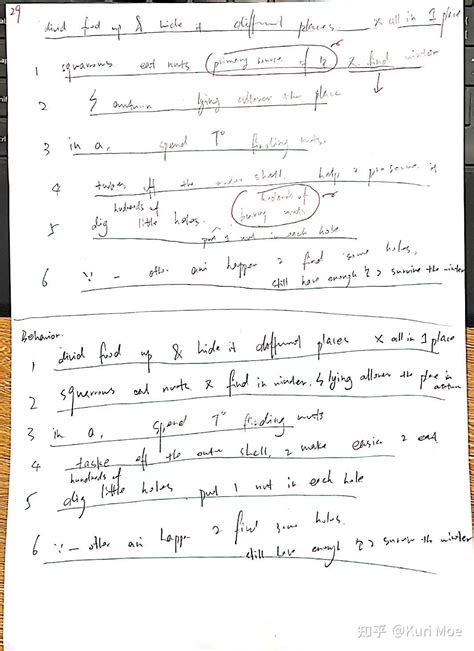 29
divid food up & hide it different places x all in 1 place
1 squarrous eat nuts primary source of x find winter
2 autumn lying allover the place
3 in a, spend T° finding nuts.
4 off the outer shell, help 2 preserve it
hundreds of hundreds of
5 dig little holes. burying nuts
put 1 nut in each hole
6 ∵ - other ani happen 2 find some holes,
still have enough 2 survive the winter
Behavior:
1 divid food up & hide it different places x all in 1 place
2 squarrous eat nuts x find in winter, lying allover the place in autumn
3 in a, spend T° finding nuts
4 taske off the outer shell, 2 make easier 2 eat
hundreds of
5 dig little holes, put 1 nut in each hole
6 ∵ - other ani happen 2 find some holes.
still have enough 2 survive the winter
知乎 @Kuri Moe